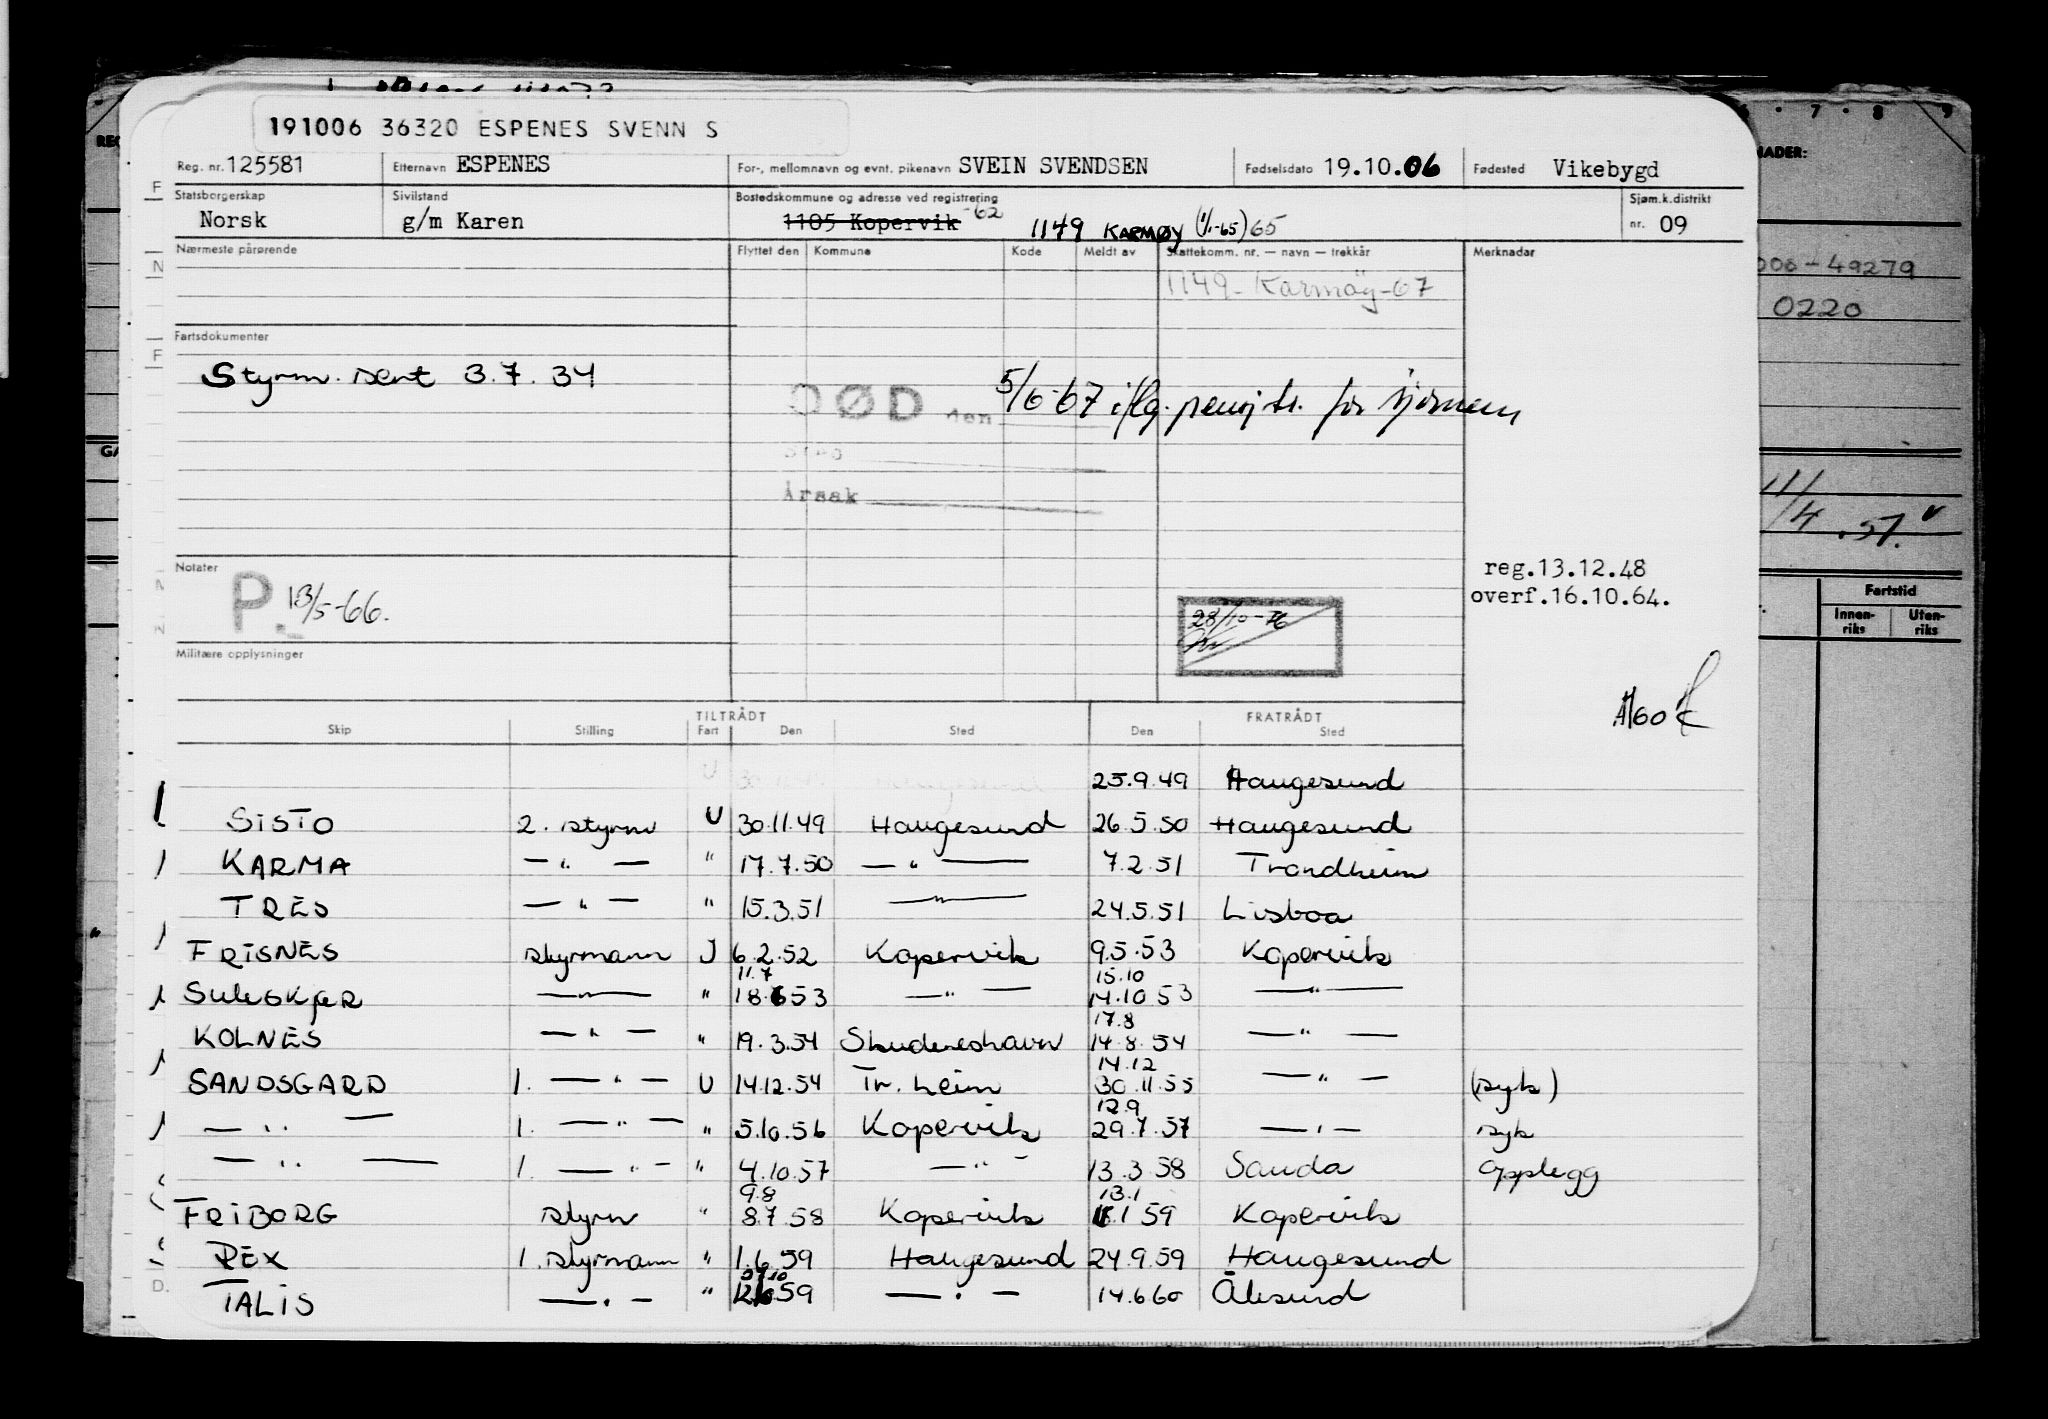 191006 36320 ESPENES SVENN S
Reg. nr. 125581 Etternavn ESPENES For-, mellomnavn og evnt. pikenavn SVEIN SVENDSEN Fødselsdato 19.10.06 Fødested Vikebygd
Statsborgerskap Norsk Sivilstand g/m Karen Bostedskommune og adresse ved registrering 1105 Kopervik -62 1149 KARMØY (1/1-65) 65 Sjøm.k.distrikt nr. 09
Nærmeste pårørende Flyttet den Kommune Kode Meldt av Skattekomm. nr. — navn — trekkår Merknader
1149 - Karmøy - 67
006 - 49279
0220
Fartsdokumenter
Styrm. sert 3.7.34
DØD den 5/6-67 iflg. pensj.tr. for sjömenn
Sted
Årsak
11/4 .57.
Notater
P. 13/5-66.
28/10-76
reg.13.12.48
overf.16.10.64.
Fartstid
Innenriks Utenriks
Militære opplysninger
TILTRÅDT FRATRÅDT
Skip Stilling Fart Den Sted Den Sted
U 30.11.49 Haugesund 25.9.49 Haugesund
SISTO 2. styrm U 30.11.49 Haugesund 26.5.50 Haugesund
KARMA — " — " 17.7.50 — " — 7.2.51 Trondheim
TRES — " — " 15.3.51 — " — 24.5.51 Lisboa
FRISNES styrmann J 6.2.52 Kopervik 9.5.53 Kopervik
11.7 15.10
SULESKJER — " — " 18.6 53 — " — 14.10 53 — " —
17.8
KOLNES — " — " 19.3.54 Skudeneshavn 14.8.54 — " —
14.12
SANDSGARD 1. — " — U 14.12.54 Tr.heim 30.11.55 — " — (syk)
12.9
— " — 1. — " — " 5.10.56 Kopervik 29.7.57 — " — syk
— " — 1. — " — " 4.10.57 — " — 13.3.58 Sauda Opplegg
9.8 13.1
FRIBORG styrm " 8.7.58 Kopervik 1 59 Kopervik
REX 1. styrmann " 1.6.59 Haugesund 24.9.59 Haugesund
TALIS — " — " 12.59 — " — 14.6 60 Ålesund